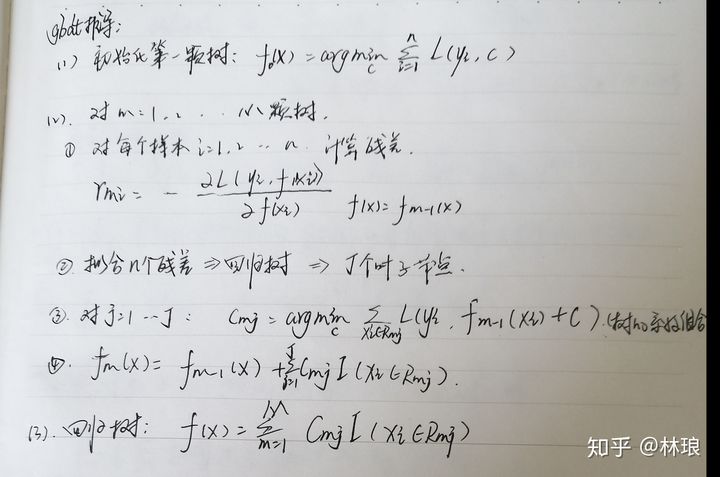 gbdt推导:
(1) 初始化第一颗树: f₀(x) = arg min_c Σ_{i=1}^{n} L(yi, C)
(2). 对 m=1, 2 ... M 颗树.
① 对每个样本 i=1, 2 ... n. 计算残差.
rmi = - ∂L(yi, f(xi)) / ∂f(xi)    f(x) = f_{m-1}(x)
② 拟合n个残差 ⇒ 回归树 ⇒ J个叶子节点.
③. 对于j=1 ... J: Cmj = arg min_c Σ_{xi∈Rmj} L(yi, f_{m-1}(xi) + C).
④. fm(x) = f_{m-1}(x) + Σ_{j=1}^{J} Cmj I(xi∈Rmj).
(3). 回归树: f(x) = Σ_{m=1}^{M} Cmj I(xi∈Rmj)
知乎 @林琅